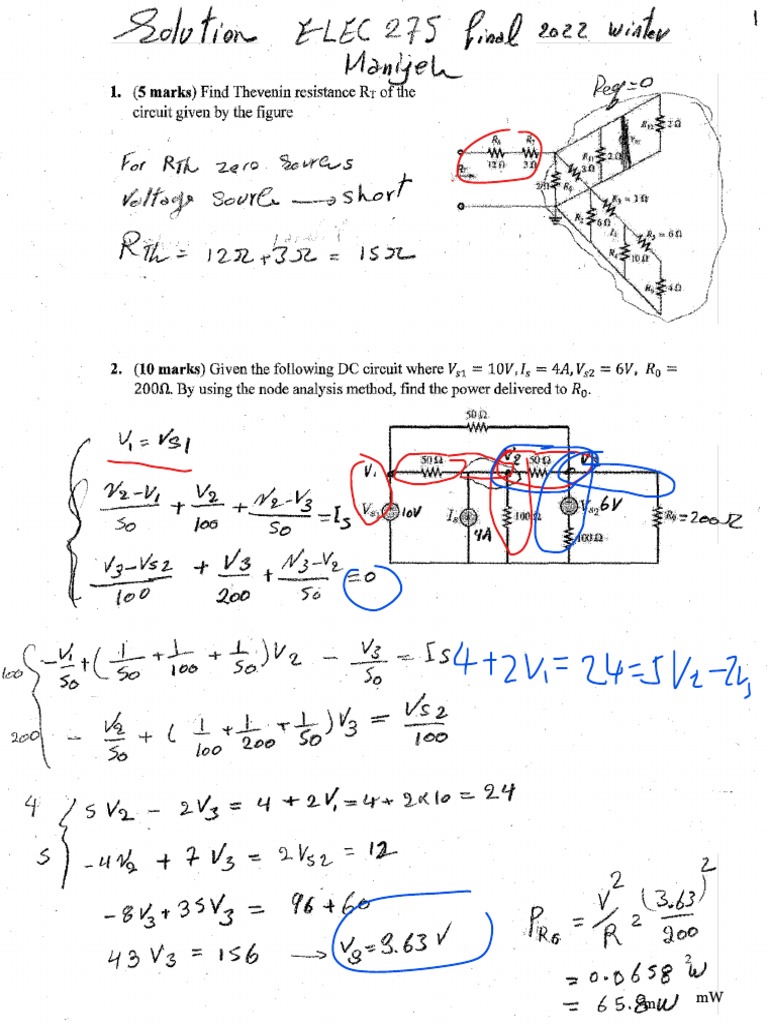 1
Solution ELEC 275 final 2022 winter
Manijeh
1. (5 marks) Find Thevenin resistance R_T of the
circuit given by the figure
Req=0
For RTh zero sources
Voltage source → short
R_Th = 12Ω + 3Ω = 15Ω
12Ω 3Ω
2Ω
R₃ = 3Ω
6Ω
R₅ = 6Ω
10Ω
4Ω
2. (10 marks) Given the following DC circuit where V_s1 = 10V, I_s = 4A, V_s2 = 6V, R_0 =
200Ω. By using the node analysis method, find the power delivered to R_0.
50 Ω
V₁ = VS1
V₁ 50 Ω V₂ 50 Ω V3
(V₂-V₁)/50 + V₂/100 + (V₂-V₃)/50 = Is
Vs1 10V Is 4A 100 Ω Vs2 6V 100 Ω R₀ = 200Ω
(V₃-VS2)/100 + V₃/200 + (V₃-V₂)/50 = 0
100 -V₁/50 + (1/50 + 1/100 + 1/50)V₂ - V₃/50 = Is 4+2V₁ = 24 = 5V₂-2V₃
200 - V₂/50 + (1/100 + 1/200 + 1/50)V₃ = VS2/100
4 5V₂ - 2V₃ = 4 + 2V₁ = 4 + 2x10 = 24
5 -4V₂ + 7V₃ = 2VS2 = 12
-8V₃ + 35V₃ = 96 + 60
43V₃ = 156 → V₃ = 3.63 V
P_R0 = V²/R = (3.63)²/200
= 0.0658 W
= 65.8mW mW